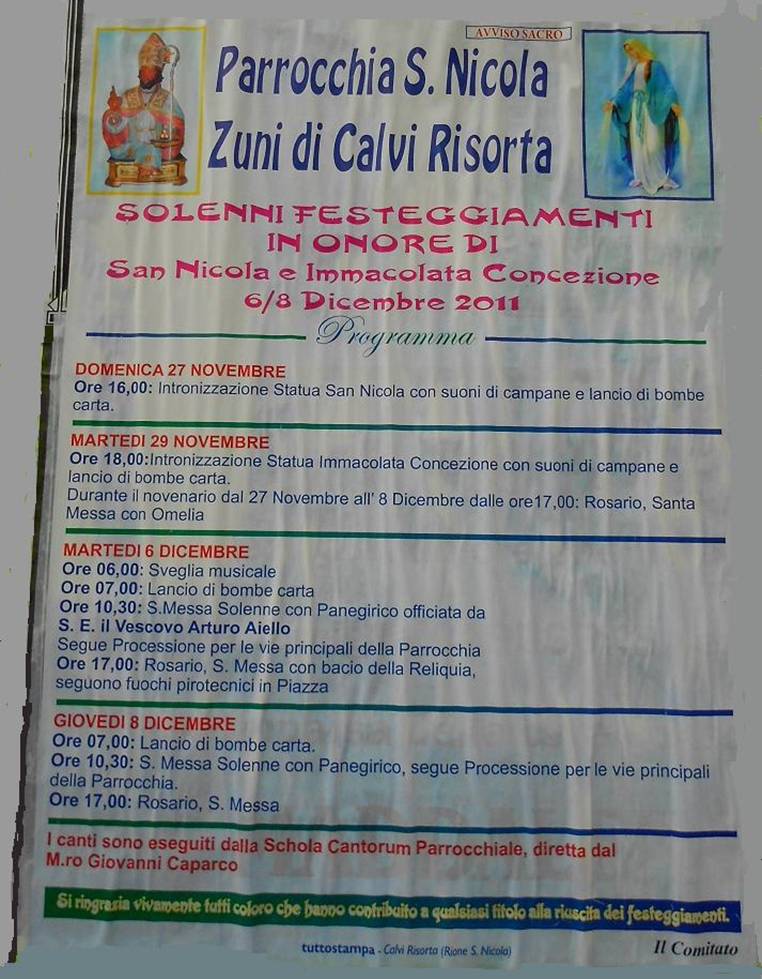 AVVISO SACRO
Parrocchia S. Nicola
Zuni di Calvi Risorta
SOLENNI FESTEGGIAMENTI
IN ONORE DI
San Nicola e Immacolata Concezione
6/8 Dicembre 2011
Programma
DOMENICA 27 NOVEMBRE
Ore 16,00: Intronizzazione Statua San Nicola con suoni di campane e lancio di bombe
carta.
MARTEDI 29 NOVEMBRE
Ore 18,00:Intronizzazione Statua Immacolata Concezione con suoni di campane e
lancio di bombe carta.
Durante il novenario dal 27 Novembre all' 8 Dicembre dalle ore17,00: Rosario, Santa
Messa con Omelia
MARTEDI 6 DICEMBRE
Ore 06,00: Sveglia musicale
Ore 07,00: Lancio di bombe carta
Ore 10,30: S.Messa Solenne con Panegirico officiata da
S. E. il Vescovo Arturo Aiello
Segue Processione per le vie principali della Parrocchia
Ore 17,00: Rosario, S. Messa con bacio della Reliquia,
seguono fuochi pirotecnici in Piazza
GIOVEDI 8 DICEMBRE
Ore 07,00: Lancio di bombe carta.
Ore 10,30: S. Messa Solenne con Panegirico, segue Processione per le vie principali
della Parrocchia.
Ore 17,00: Rosario, S. Messa
I canti sono eseguiti dalla Schola Cantorum Parrocchiale, diretta dal
M.ro Giovanni Caparco
Si ringrazia vivamente tutti coloro che hanno contribuito a qualsiasi titolo alla riuscita dei festeggiamenti.
tuttostampa - Calvi Risorta (Rione S. Nicola)
Il Comitato